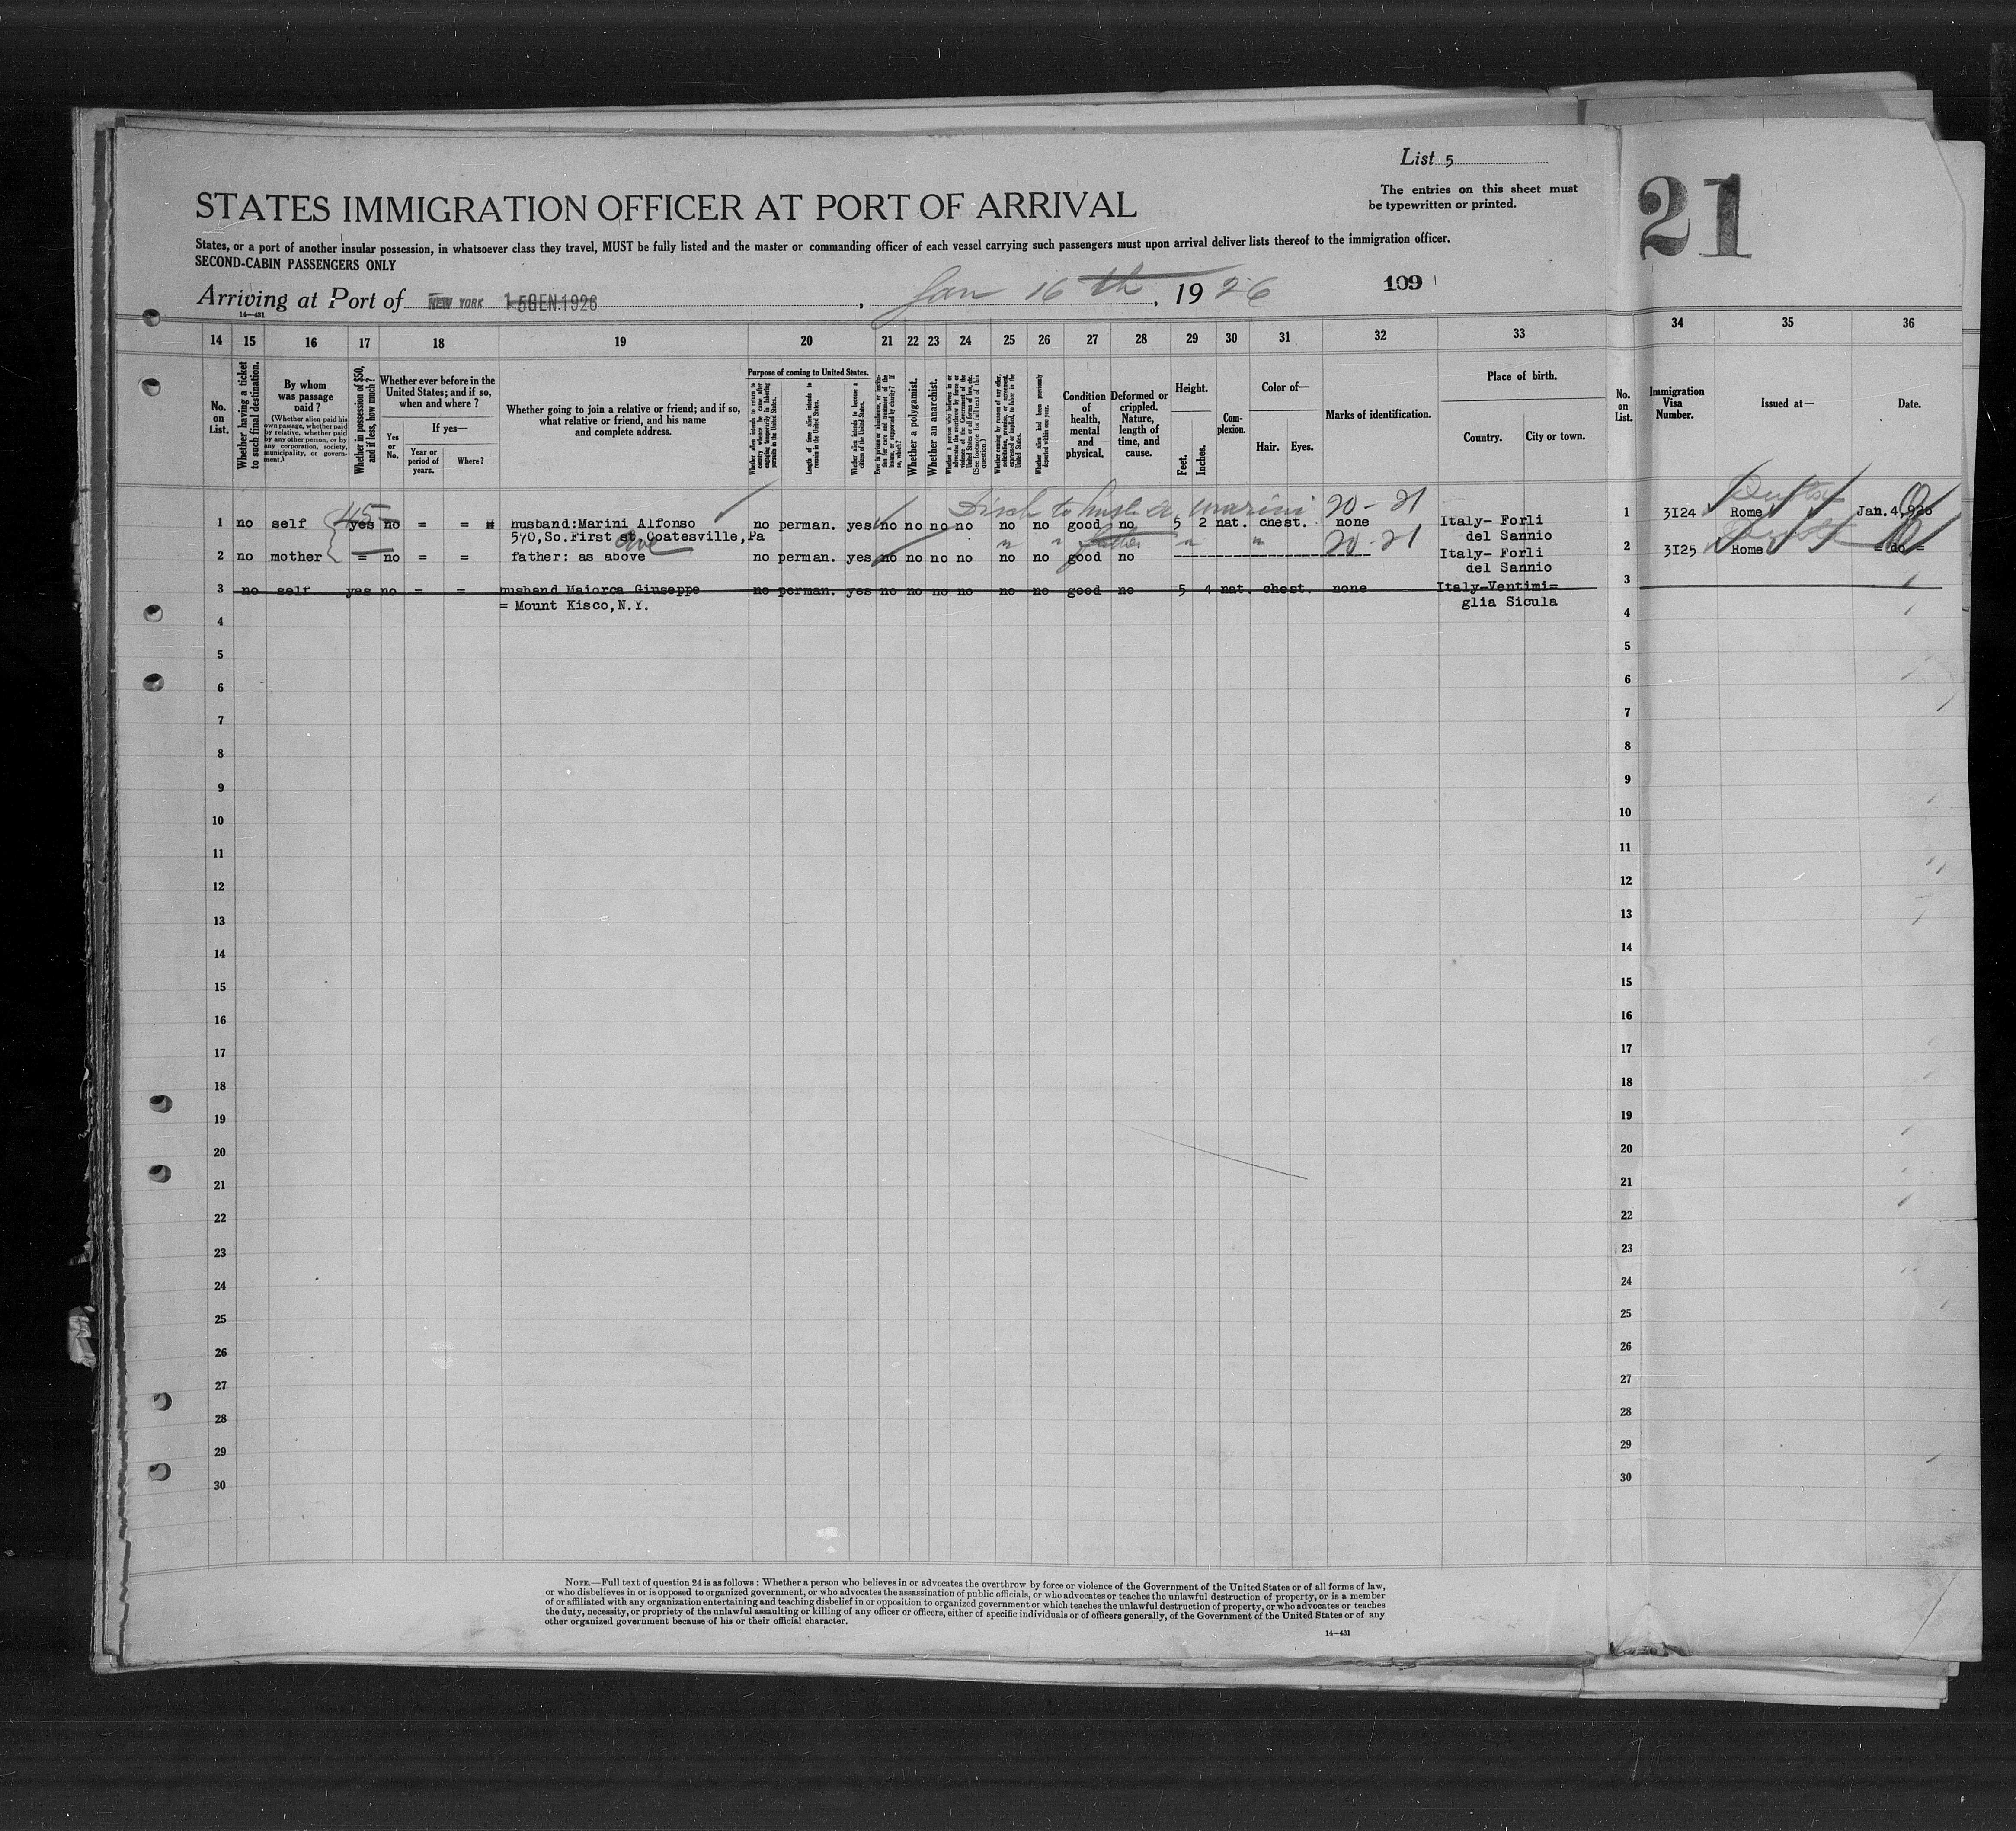 List 5
STATES IMMIGRATION OFFICER AT PORT OF ARRIVAL
The entries on this sheet must
be typewritten or printed.
21
States, or a port of another insular possession, in whatsoever class they travel, MUST be fully listed and the master or commanding officer of each vessel carrying such passengers must upon arrival deliver lists thereof to the immigration officer.
SECOND-CABIN PASSENGERS ONLY
Arriving at Port of NEW YORK 15 GEN. 1926, Jan 16th, 1926
109
14—431
14 15 16 17 18 19 20 21 22 23 24 25 26 27 28 29 30 31 32 33 34 35 36
No. on List.
Whether having a ticket to such final destination.
By whom was passage paid?
(Whether alien paid his own passage, whether paid by relative, whether paid by any other person, or by any corporation, society, municipality, or government.)
Whether in possession of $50, and if less, how much?
Whether ever before in the United States; and if so, when and where?
Yes or No.
If yes—
Year or period of years.
Where?
Whether going to join a relative or friend; and if so, what relative or friend, and his name and complete address.
Purpose of coming to United States.
Length of time alien intends to remain in the United States.
Whether alien intends to become a citizen of the United States.
Whether a polygamist.
Whether an anarchist.
Condition of health, mental and physical.
Deformed or crippled. Nature, length of time, and cause.
Height.
Feet.
Inches.
Complexion.
Color of—
Hair.
Eyes.
Marks of identification.
Place of birth.
Country.
City or town.
No. on List.
Immigration Visa Number.
Issued at—
Date.
45
to husb A. Marini 20-21
1 no self yes no = = husband:Marini Alfonso no perman. yes no no no no no no good no 5 2 nat. chest. none Italy- Forli 1 3124 Rome Jan. 4,926
570,So.First st,Coatesville,Pa del Sannio
ave
" " father " " 20-21
2 no mother = no = = father: as above no perman. yes no no no no no no good no Italy- Forli 2 3125 Rome = do =
del Sannio
3 no self yes no = = husband Maiorca Giuseppe no perman. yes no no no no no no good no 5 4 nat. chest. none Italy-Ventimi= 3
= Mount Kisco,N.Y. glia Sicula
4 4
5 5
6 6
7 7
8 8
9 9
10 10
11 11
12 12
13 13
14 14
15 15
16 16
17 17
18 18
19 19
20 20
21 21
22 22
23 23
24 24
25 25
26 26
27 27
28 28
29 29
30 30
NOTE.—Full text of question 24 is as follows: Whether a person who believes in or advocates the overthrow by force or violence of the Government of the United States or of all forms of law,
or who disbelieves in or is opposed to organized government, or who advocates the assassination of public officials, or who advocates or teaches the unlawful destruction of property, or is a member
of or affiliated with any organization entertaining and teaching disbelief in or opposition to organized government or which teaches the unlawful destruction of property, or who advocates or teaches
the duty, necessity, or propriety of the unlawful assaulting or killing of any officer or officers, either of specific individuals or of officers generally, of the Government of the United States or of any
other organized government because of his or their official character.
14—431